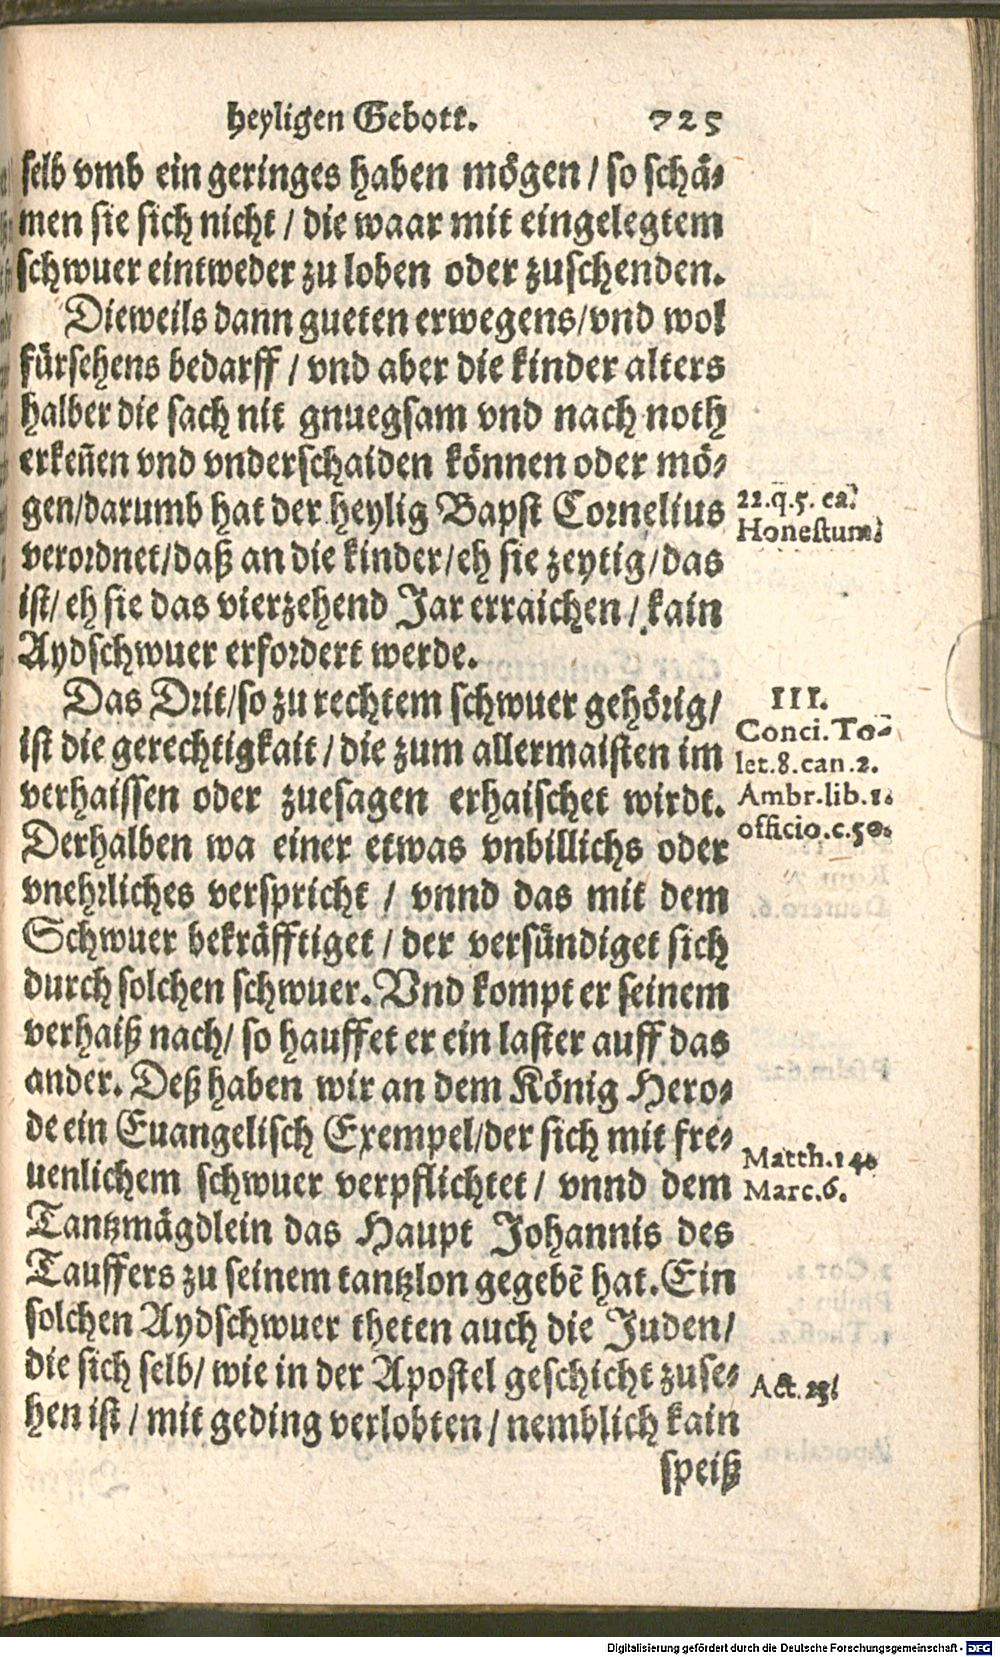 heyligen Gebott. 725
selb vmb ein geringes haben mögen / so schä-
men sie sich nicht / die waar mit eingelegtem
schwuer eintweder zu loben oder zuschenden.
Dieweils dann gueten erwegens/vnd wol
fürsehens bedarff / vnd aber die kinder alters
halber die sach nit gnuegsam vnd nach noth
erkeñen vnd vnderschaiden können oder mö-
gen/darumb hat der heylig Bapst Cornelius
22.q.5. ca.
Honestum.
verordnet/daß an die kinder/eh sie zeytig/das
ist/ eh sie das vierzehend Jar erraichen / kain
Aydschwuer erfordert werde.
Das Drit/so zu rechtem schwuer gehörig/
III.
ist die gerechtigkait / die zum allermaisten im
Conci. To-
let.8.can.2.
verhaissen oder zuesagen erhaischet wirdt.
Ambr.lib.1.
officio.c.50.
Derhalben wa einer etwas vnbillichs oder
vnehrliches verspricht / vnnd das mit dem
Schwuer bekräfftiget / der versündiget sich
durch solchen schwuer. Vnd kompt er seinem
verhaiß nach/ so hauffet er ein laster auff das
ander. Deß haben wir an dem König Hero-
de ein Euangelisch Exempel/der sich mit fre-
uenlichem schwuer verpflichtet / vnnd dem
Matth.14.
Marc.6.
Tantzmägdlein das Haupt Johannis des
Tauffers zu seinem tantzlon gegebẽ hat. Ein
solchen Aydschwuer theten auch die Juden/
die sich selb/ wie in der Apostel geschicht zuse-
Act. 23.
hen ist / mit geding verlobten / nemblich kain
speiß
Digitalisierung gefördert durch die Deutsche Forschungsgemeinschaft - DFG